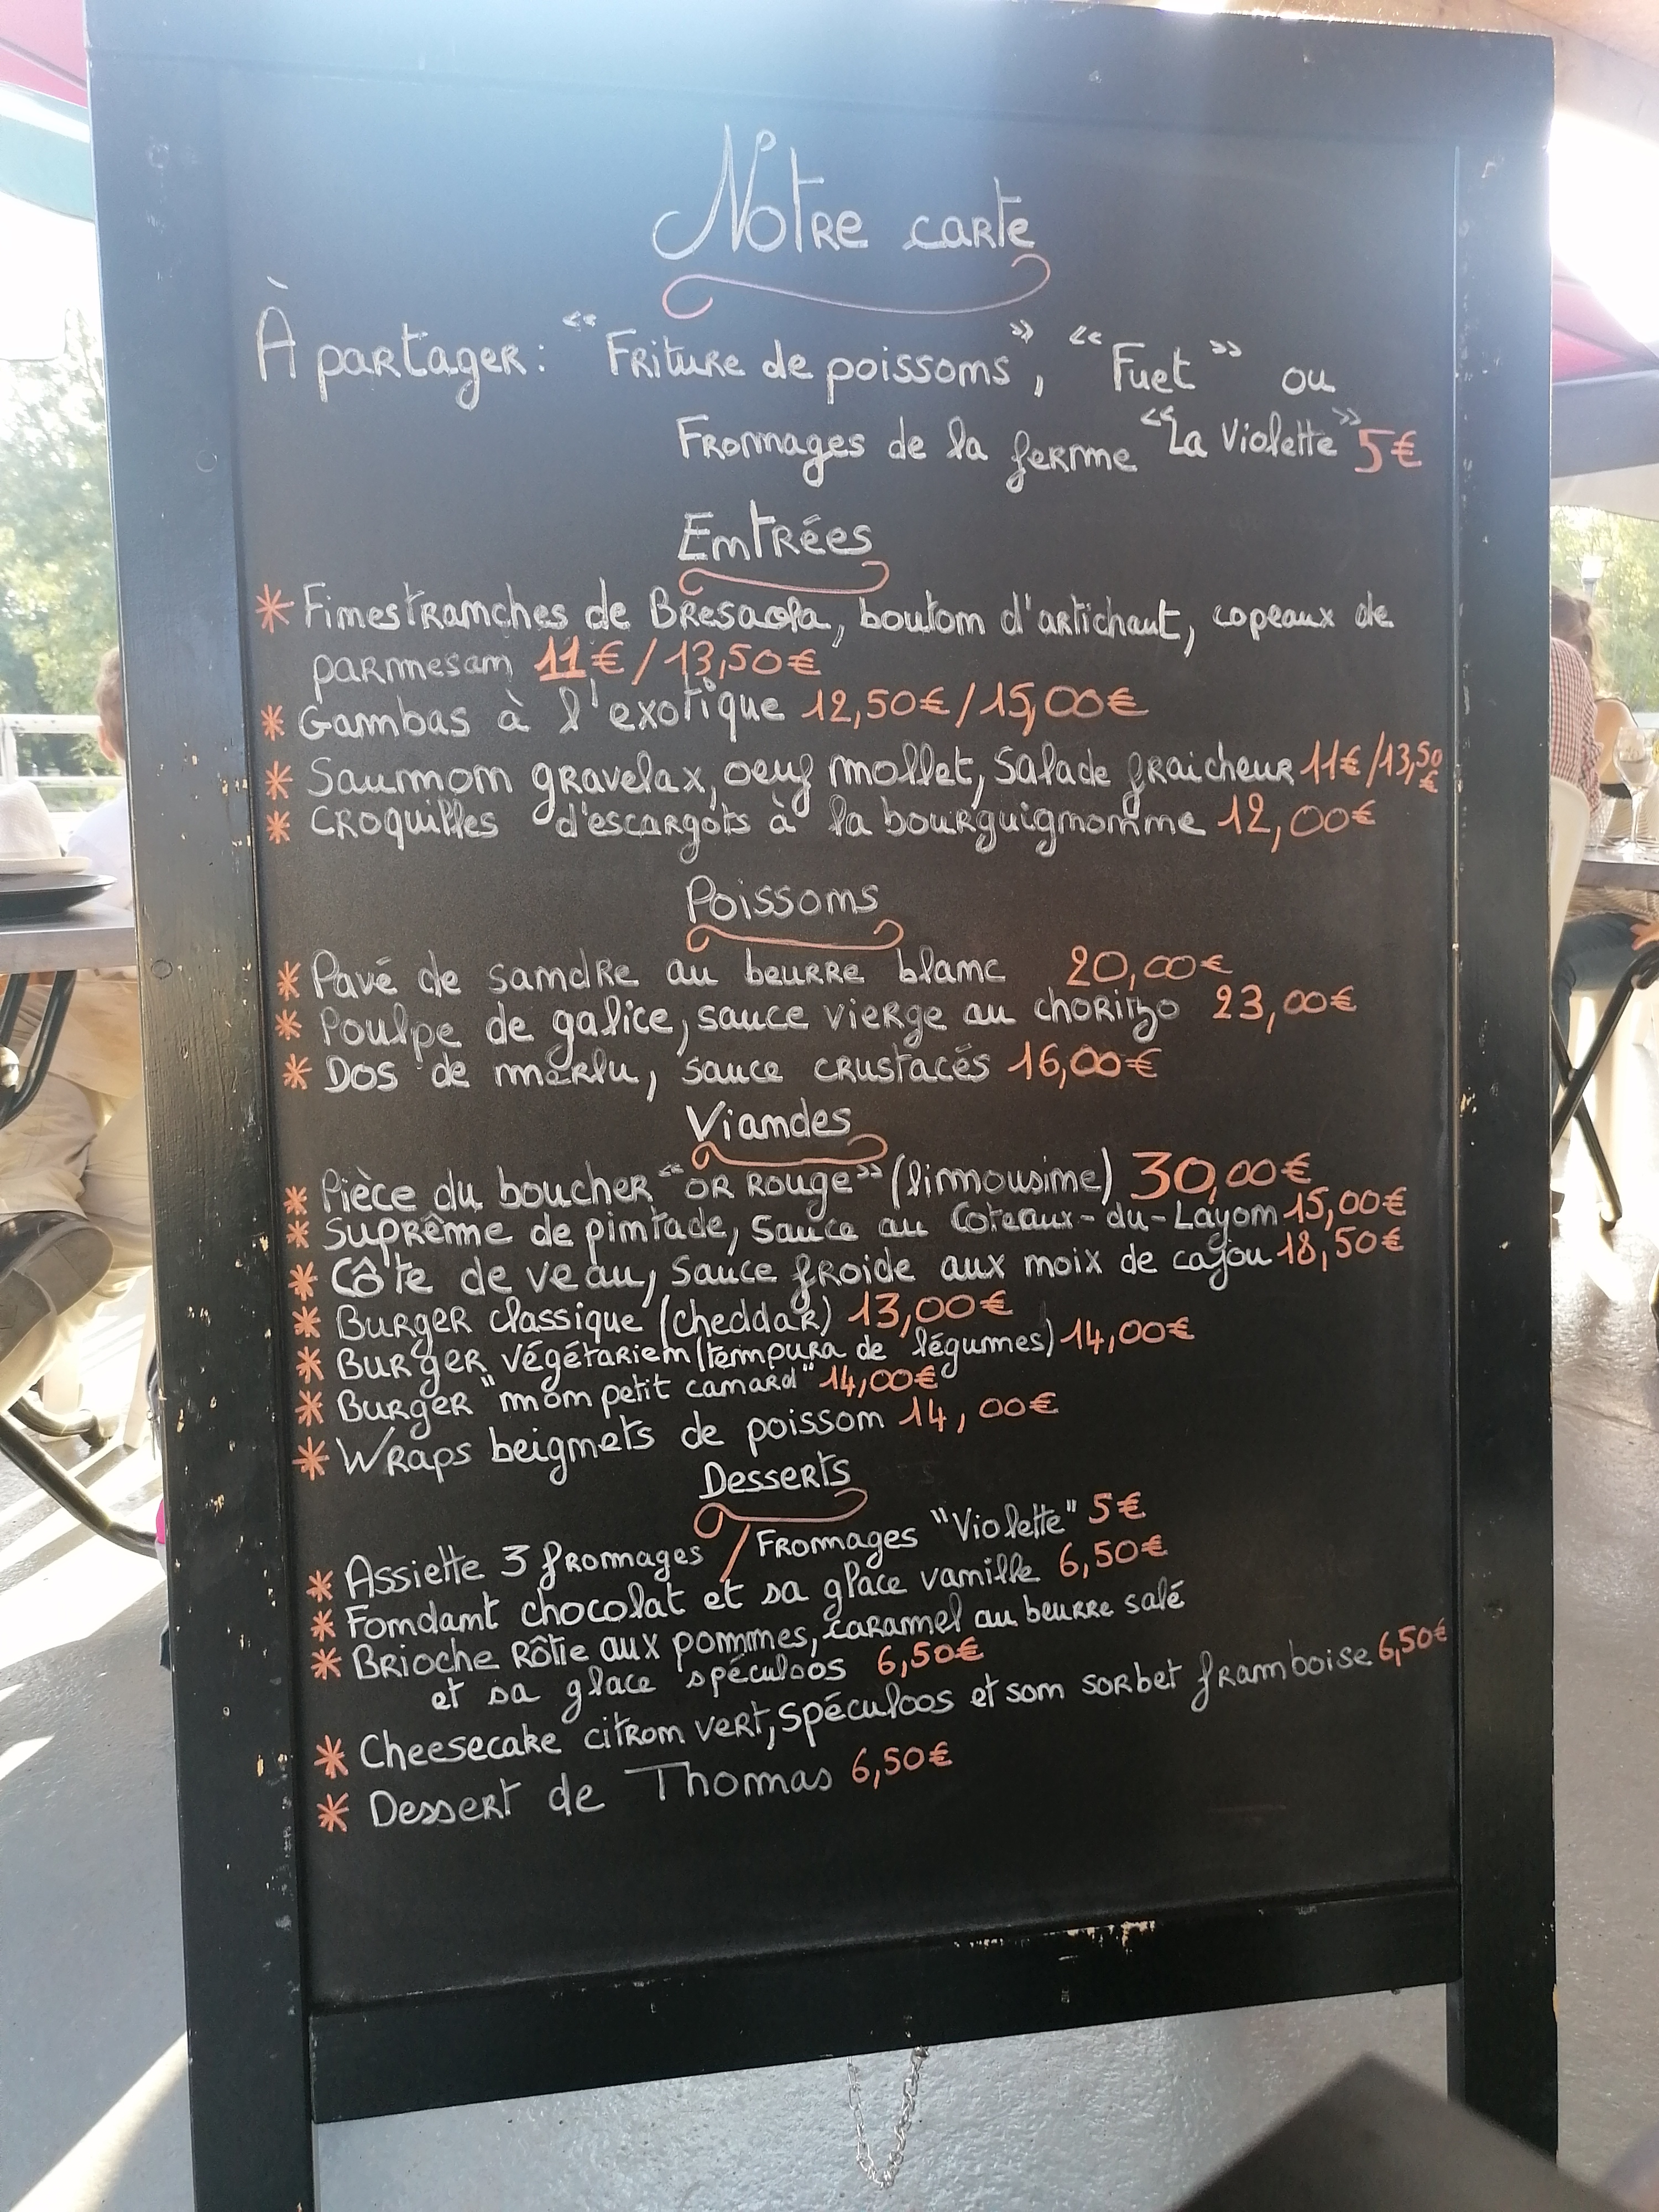 Notre carte
À partager : "Friture de poissons", "Fuet" ou
Fromages de la ferme "La Violette" 5€
Entrées
* Fines tranches de Bresaola, bouton d'artichaut, copeaux de
parmesan 11€ / 13,50€
* Gambas à l'exotique 12,50€ / 15,00€
* Saumon gravelax, oeuf mollet, Salade fraicheur 11€ / 13,50€
* Croquilles d'escargots à la bourguignonne 12,00€
Poissons
* Pavé de sandre au beurre blanc 20,00€
* Poulpe de galice, sauce vierge au chorizo 23,00€
* Dos de merlu, sauce crustacés 16,00€
Viandes
* Pièce du boucher "or rouge" (limousine) 30,00€
* Suprême de pintade, Sauce au Coteaux-du-Layon 15,00€
* Côte de veau, Sauce froide aux noix de cajou 18,50€
* Burger classique (cheddar) 13,00€
* Burger végétarien (tempura de légumes) 14,00€
* Burger "mon petit canard" 14,00€
* Wraps beignets de poisson 14,00€
Desserts
* Assiette 3 fromages / Fromages "Violette" 5€
* Fondant chocolat et sa glace vanille 6,50€
* Brioche Rôtie aux pommes, caramel au beurre salé
et sa glace spéculoos 6,50€
* Cheesecake citron vert, spéculoos et son sorbet framboise 6,50€
* Dessert de Thomas 6,50€